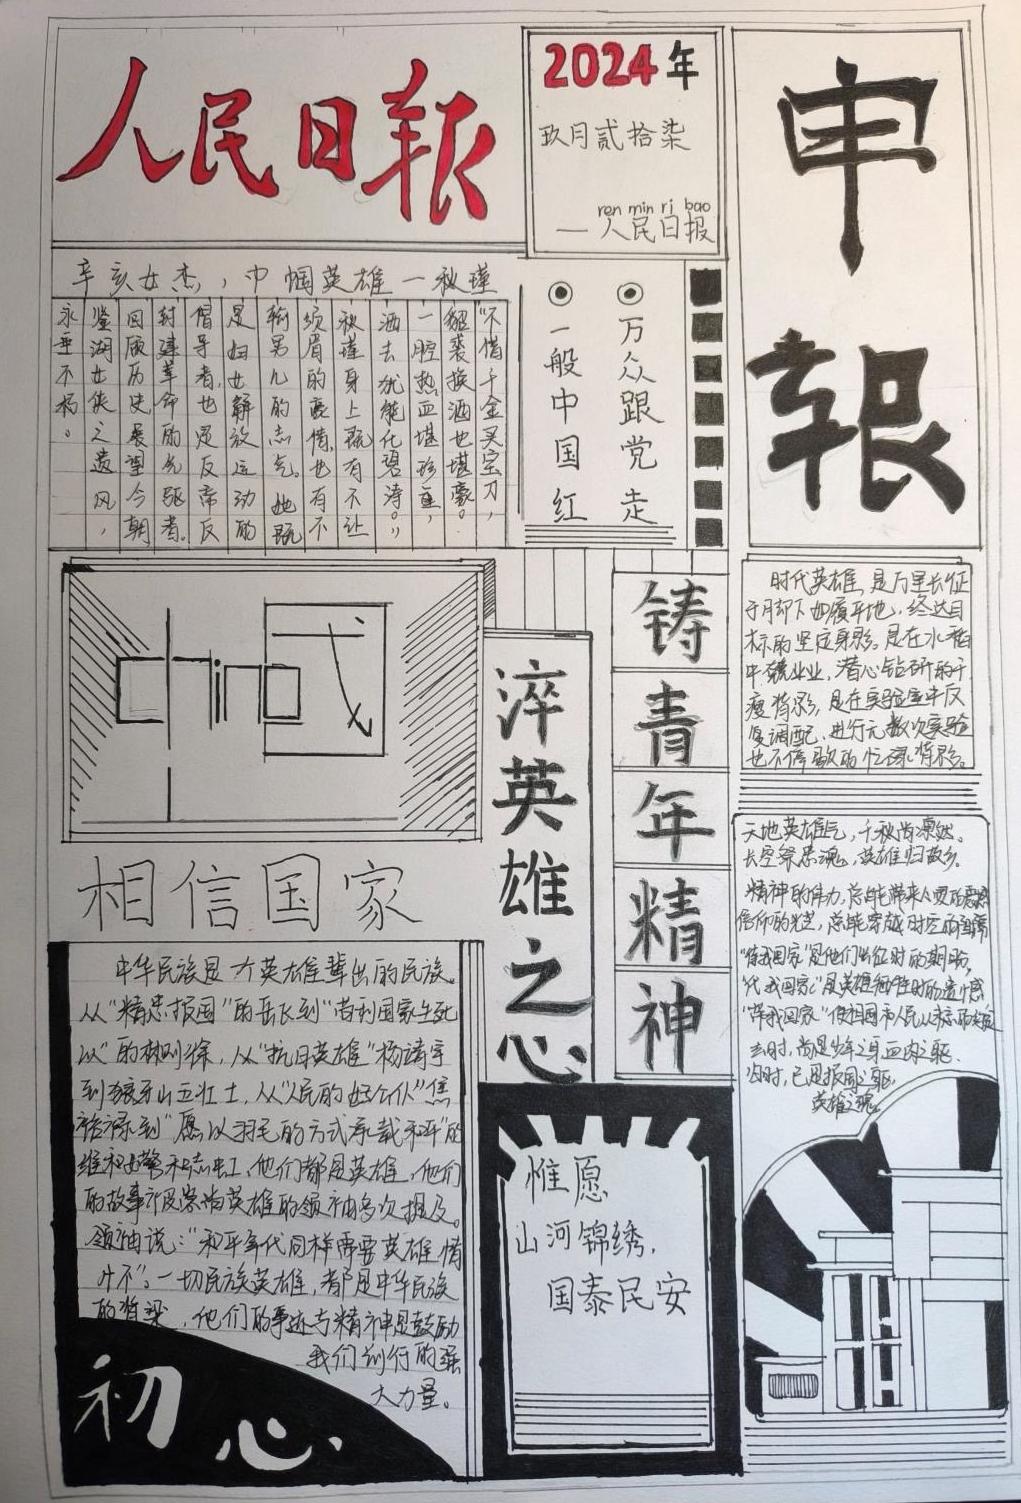 人民日报
2024年
玖月贰拾柒
ren min ri bao
—人民日报
申
报
辛亥女杰，巾帼英雄—秋瑾
“不惜千金买宝刀，
貂裘换酒也堪豪。
一腔热血堪珍重，
洒去犹能化碧涛。”
秋瑾身上既有不让
须眉的豪情，也有不
衔男儿的志气。她既
是妇女解放运动的
倡导者，也是反帝反
封建革命的先驱者。
回顾历史，展望今朝
鉴湖女侠之遗风，
永垂不朽。
万众跟党走
一般中国红
中国
式
相信国家
淬英雄之心
铸青年精神
时代英雄，是万里长征
于月却下如履平地，终达目
标的坚定身影。是在水稻
中兢业业，潜心钻研的干
瘦背影，是在实验室中反
复调配，进行无数次实验
也不停歇的忙碌背影。
天地英雄气，千秋尚凛然。
长空祭忠魂，英雄归故乡。
信仰的光芒，总能穿越时空的
“待我回家”是他们出征时的期盼，
“代我回家”是英雄牺牲时的遗憾
去时，尚是少年之身血肉之躯，
归时，已是报国之躯
英雄之魂
中华民族是个英雄辈出的民族。
从“精忠报国”的岳飞到“苟利国家生死
以”的林则徐，从“抗日英雄”杨靖宇
到狼牙山五壮士，从“人民的好公仆”焦
裕禄到“愿以羽毛的方式承载和平”的
维和警察和志虹，他们都是英雄，他们
的故事被誉为英雄的领袖多次提及。
领袖说：“和平年代同样需要英雄情
怀”。一切民族英雄，都是中华民族
的脊梁，他们的事迹与精神是鼓励
我们前行的强
大力量。
初心
惟愿
山河锦绣，
国泰民安